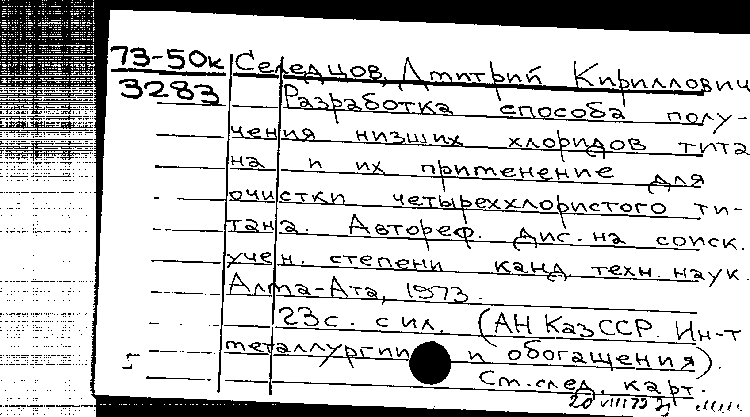 73-50к Селедцов, Дмитрий Кириллович
3283 Разработка способа полу-
чения низших хлоридов тита
на и их применение для
очистки четыреххлористого ти-
тана. Автореф. дис. на соиск.
учен. степени канд. техн. наук.
Алма-Ата, 1973.
23с. с ил. (АН КазССР. Ин-т
металлургии и обогащения).
См. след. карт.
20 VIII 73